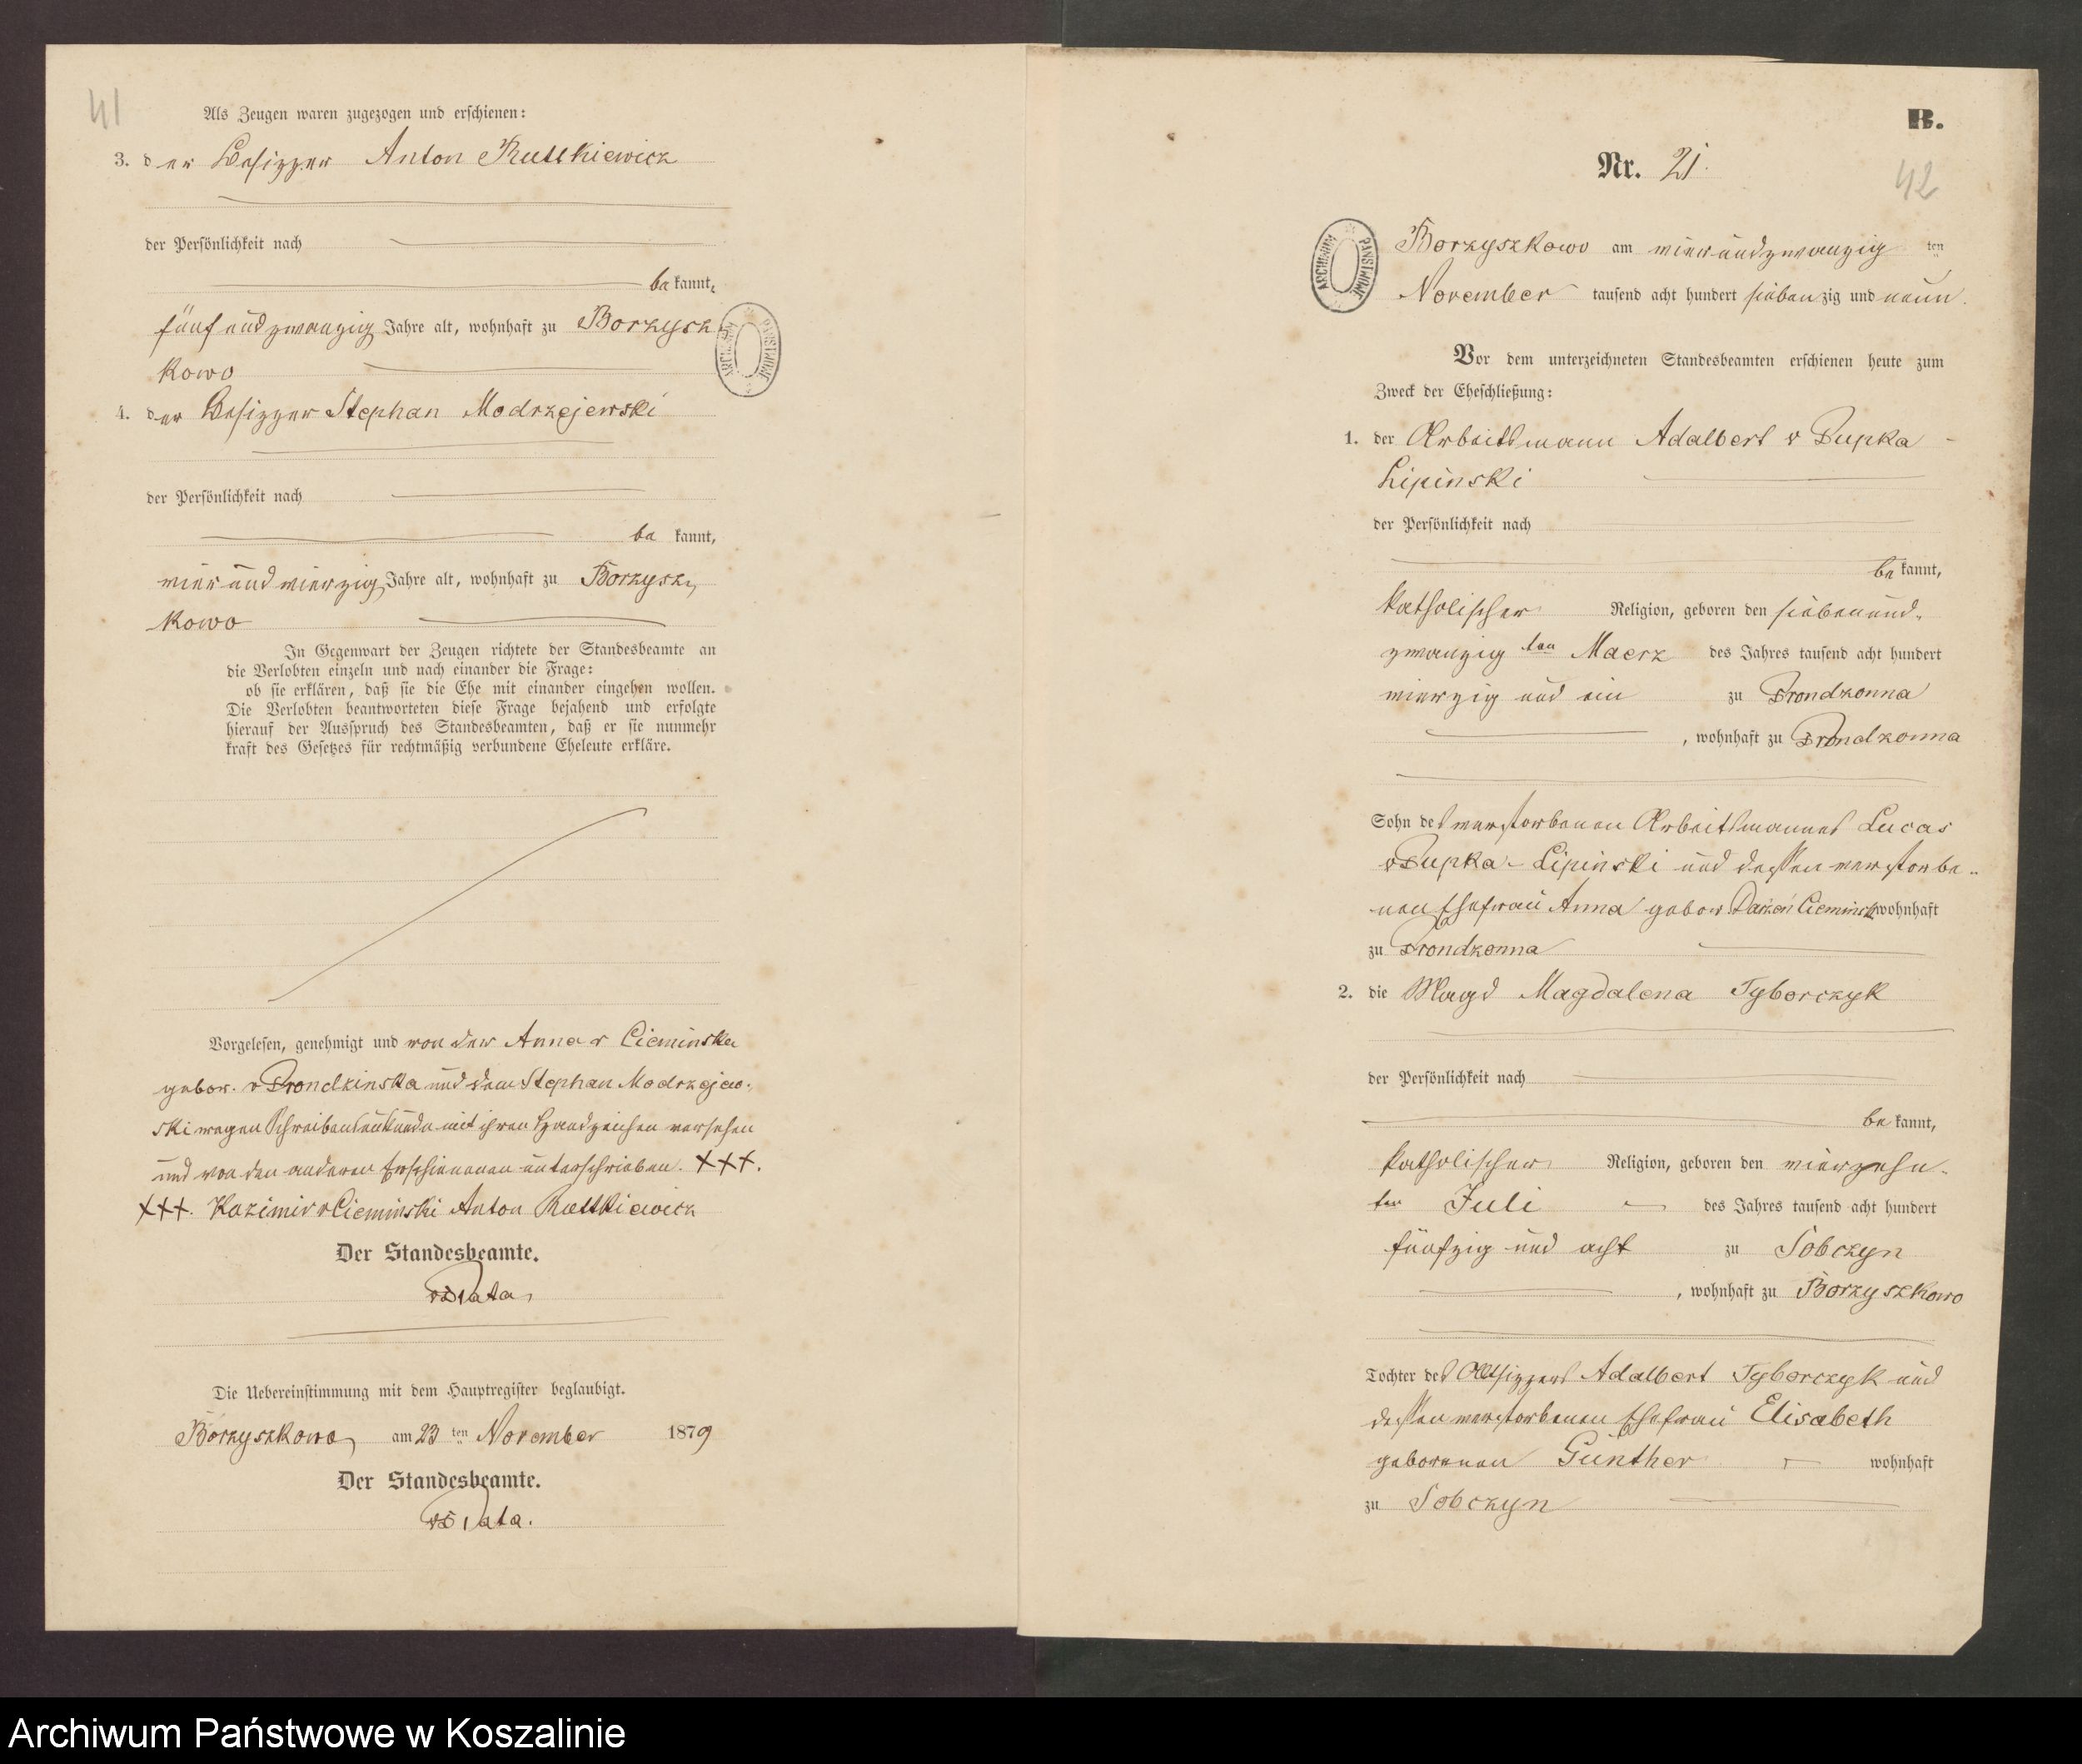 41
Als Zeugen waren zugezogen und erschienen:
3. der Besitzer Anton Ruttkiewicz
der Persönlichkeit nach
be kannt,
fünfundzwanzig Jahre alt, wohnhaft zu Borzysz
kowo
4. der Besitzer Stephan Modrzejewski
der Persönlichkeit nach
be kannt,
vierundvierzig Jahre alt, wohnhaft zu Borzysz,
kowo
In Gegenwart der Zeugen richtete der Standesbeamte an
die Verlobten einzeln und nach einander die Frage:
ob sie erklären, daß sie die Ehe mit einander eingehen wollen.
Die Verlobten beantworteten diese Frage bejahend und erfolgte
hierauf der Ausspruch des Standesbeamten, daß er sie nunmehr
kraft des Gesetzes für rechtmäßig verbundene Eheleute erkläre.
Vorgelesen, genehmigt und von der Anna v Cieminska
gebor. v Prondzinska und dem Stephan Modrzejew-
ski wegen Schreibensunkunde mit ihren Handzeichen versehen
und von den anderen Erschienenen unterschrieben. +++.
+++. Kazimir v Cieminski Anton Ruttkiewicz
Der Standesbeamte.
Die Uebereinstimmung mit dem Hauptregister beglaubigt.
Borzyszkowo, am 23 ten November 1879
Der Standesbeamte.
ARCHIWUM PAŃSTWOWE
B.
Nr. 21.
42
ARCHIWUM PAŃSTWOWE
Borzyszkowo am vierundzwanzig ten
November tausend acht hundert siebenzig und neun.
Vor dem unterzeichneten Standesbeamten erschienen heute zum
Zweck der Eheschließung:
1. der Arbeitsmann Adalbert v Pupka-
Lipinski
der Persönlichkeit nach
be kannt,
katholischer Religion, geboren den siebenund-
zwanzig ten Maerz des Jahres tausend acht hundert
vierzig und ein zu Prondzonna
, wohnhaft zu Prondzonna
Sohn des verstorbenen Arbeitsmannes Lucas
v Pupka-Lipinski und dessen verstorbe-
nen Ehefrau Anna gebor Cieminski wohnhaft
zu Prondzonna
2. die Magd Magdalena Tyborczyk
der Persönlichkeit nach
be kannt,
katholischer Religion, geboren den vierzehn-
ten Juli des Jahres tausend acht hundert
fünfzig und acht zu Sobczyn
, wohnhaft zu Borzyszkowo
Tochter des Altsitzers Adalbert Tyborczyk und
dessen verstorbenen Ehefrau Elisabeth
geborenen Günther wohnhaft
zu Sobczyn
Archiwum Państwowe w Koszalinie